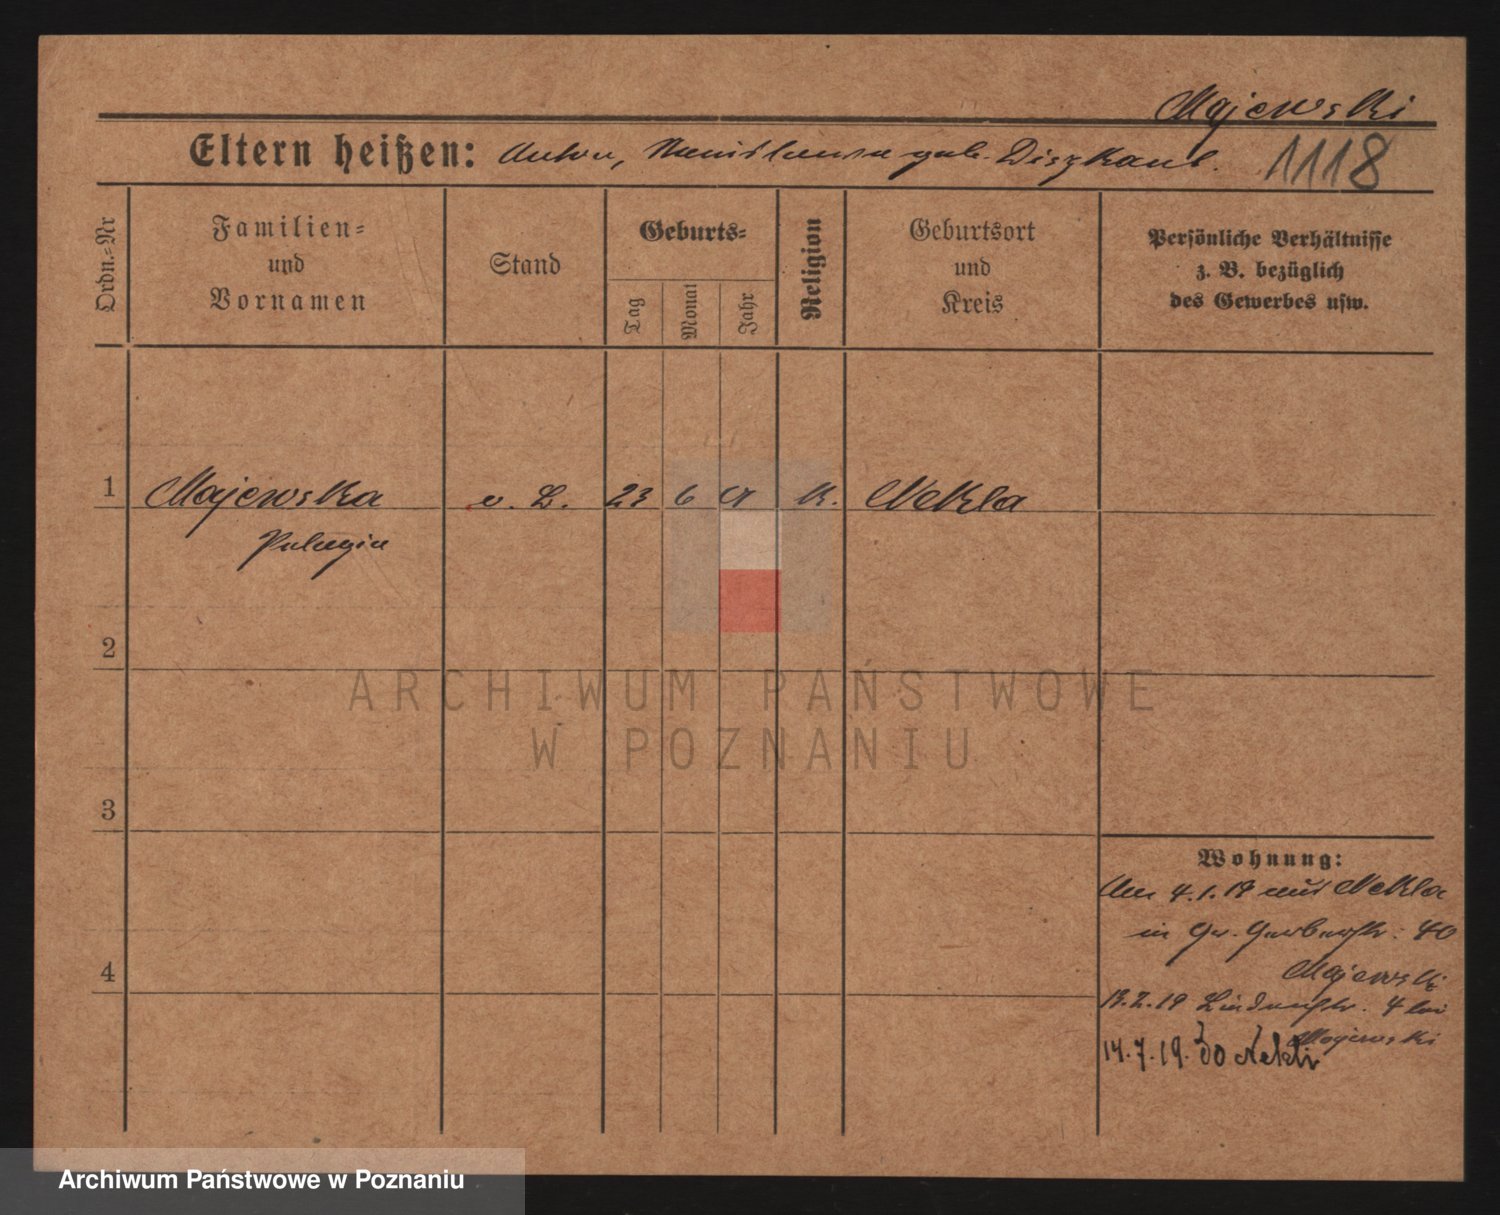 Majewski
Eltern heißen: Anton, Stanislawa geb. Diszkant. 1118
Ordn.-Nr
Familien-
und
Vornamen
Stand
Geburts-
Tag
Monat
Jahr
Religion
Geburtsort
und
Kreis
Persönliche Verhältnisse
z. B. bezüglich
des Gewerbes usw.
1 Majewska o. B. 23 6 01 K. Nekla
Pelagia
2
ARCHIWUM PAŃSTWOWE
W POZNANIU
3
Wohnung:
Am 4.1.19 aus Nekla
in Gr. Gerberstr. 40
4
Majewski
13.2.19 Lindenstr. 4 bei
Majewski
14.7.19. do Nekli
Archiwum Państwowe w Poznaniu